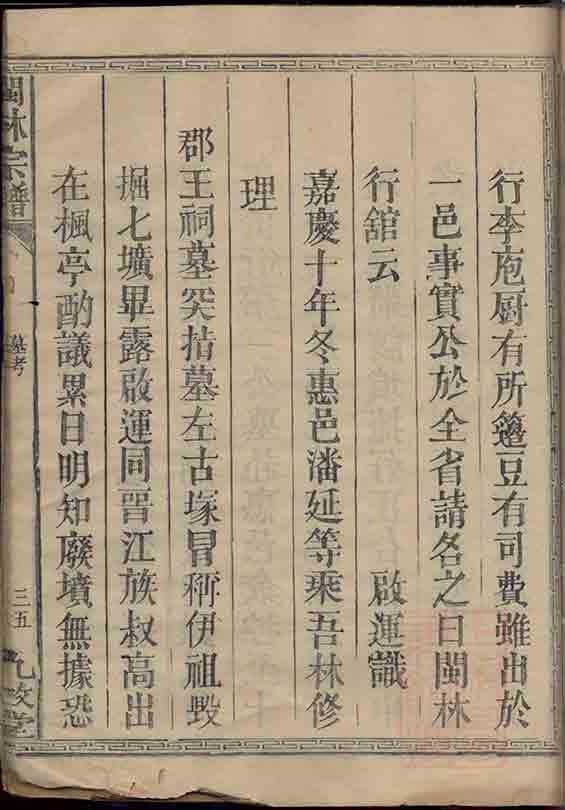 行李庖厨有所籩豆有司費雖出於
一邑事實公於全省請名之曰閩林
行舘云　啟運識
嘉慶十年冬惠邑潘延等乘吾林修
理
郡王祠墓突拮墓左古塚冒稱伊祖毀
掘七壙畢露啟運同晋江族叔高出
在楓亭酌議累日明知廢墳無據恐
閩林宗譜
墓考
三五
九牧堂